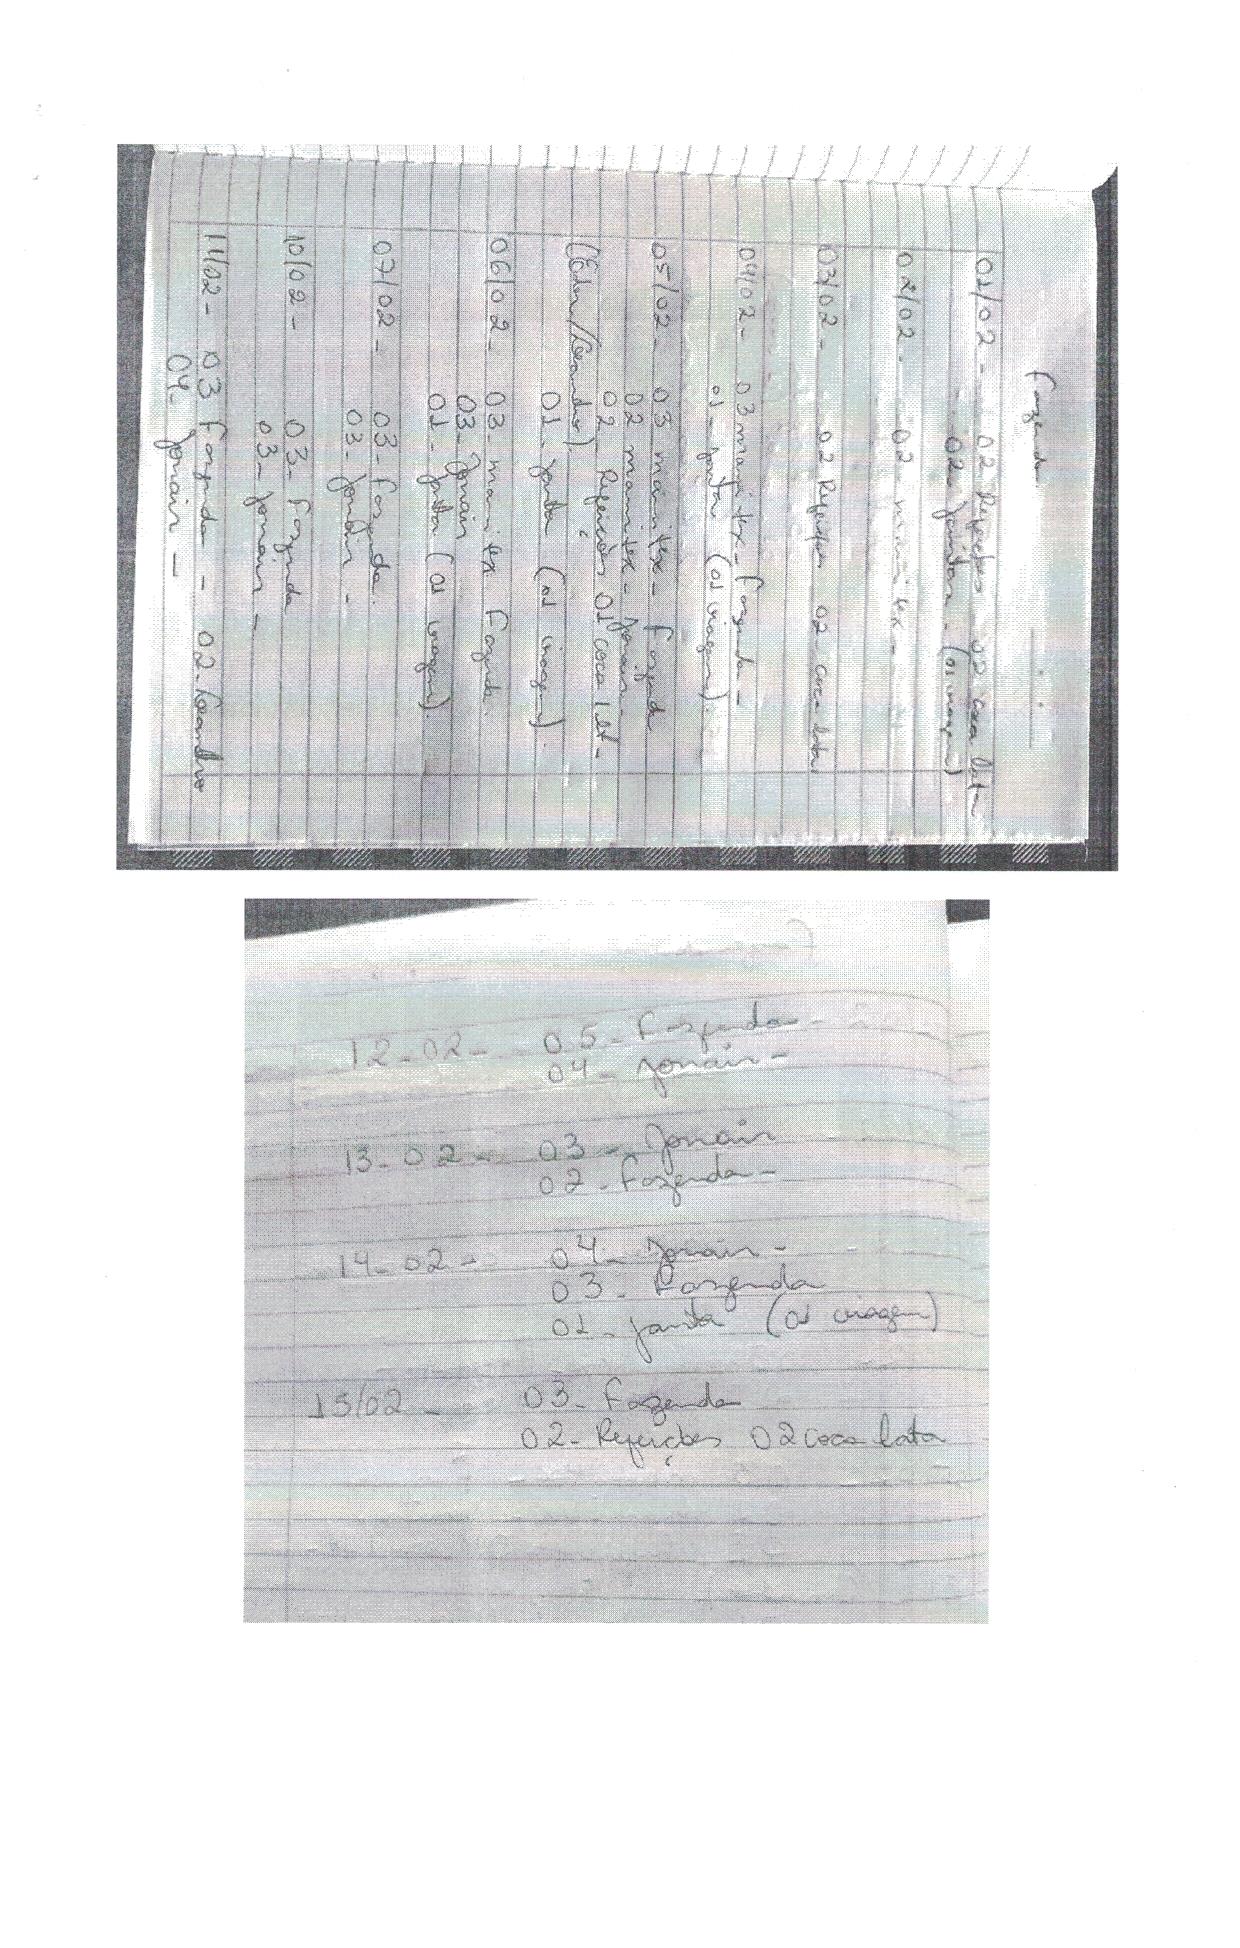 Fazenda
01/02 - 02 Refeições 02 coca lata
02 - Jantar - (os viagem)
02/02 - 02 - marmitex -
03/02 - 02 Refeições 02 coca lata
04/02 - 03 marmitex - Fazenda -
01 - janta (01 viagem).
05/02 - 03 marmitex - Fazenda
02 marmitex - Jonair -
02 - Refeições 01 coca 1 lt -
(Eder/Leandro).
01 - janta (01 viagem).
06/02 - 03 - marmitex Fazenda.
03 - Jonair
01 - janta (01 viagem).
07/02 - 03 - Fazenda.
03 - Jonair -
10/02 - 03 - Fazenda
03 - Jonair -
11/02 - 03 Fazenda - 02 - Leandro
04 - Jonair -
12-02 - 05 - Fazenda -
04 - Jonair -
13-02 - 03 - Jonair
02 - Fazenda -
14-02 - 04 - Jonair -
03 - Fazenda
01 - janta (01 viagem)
15/02 - 03 - Fazenda
02 - Refeições 02 coca lata